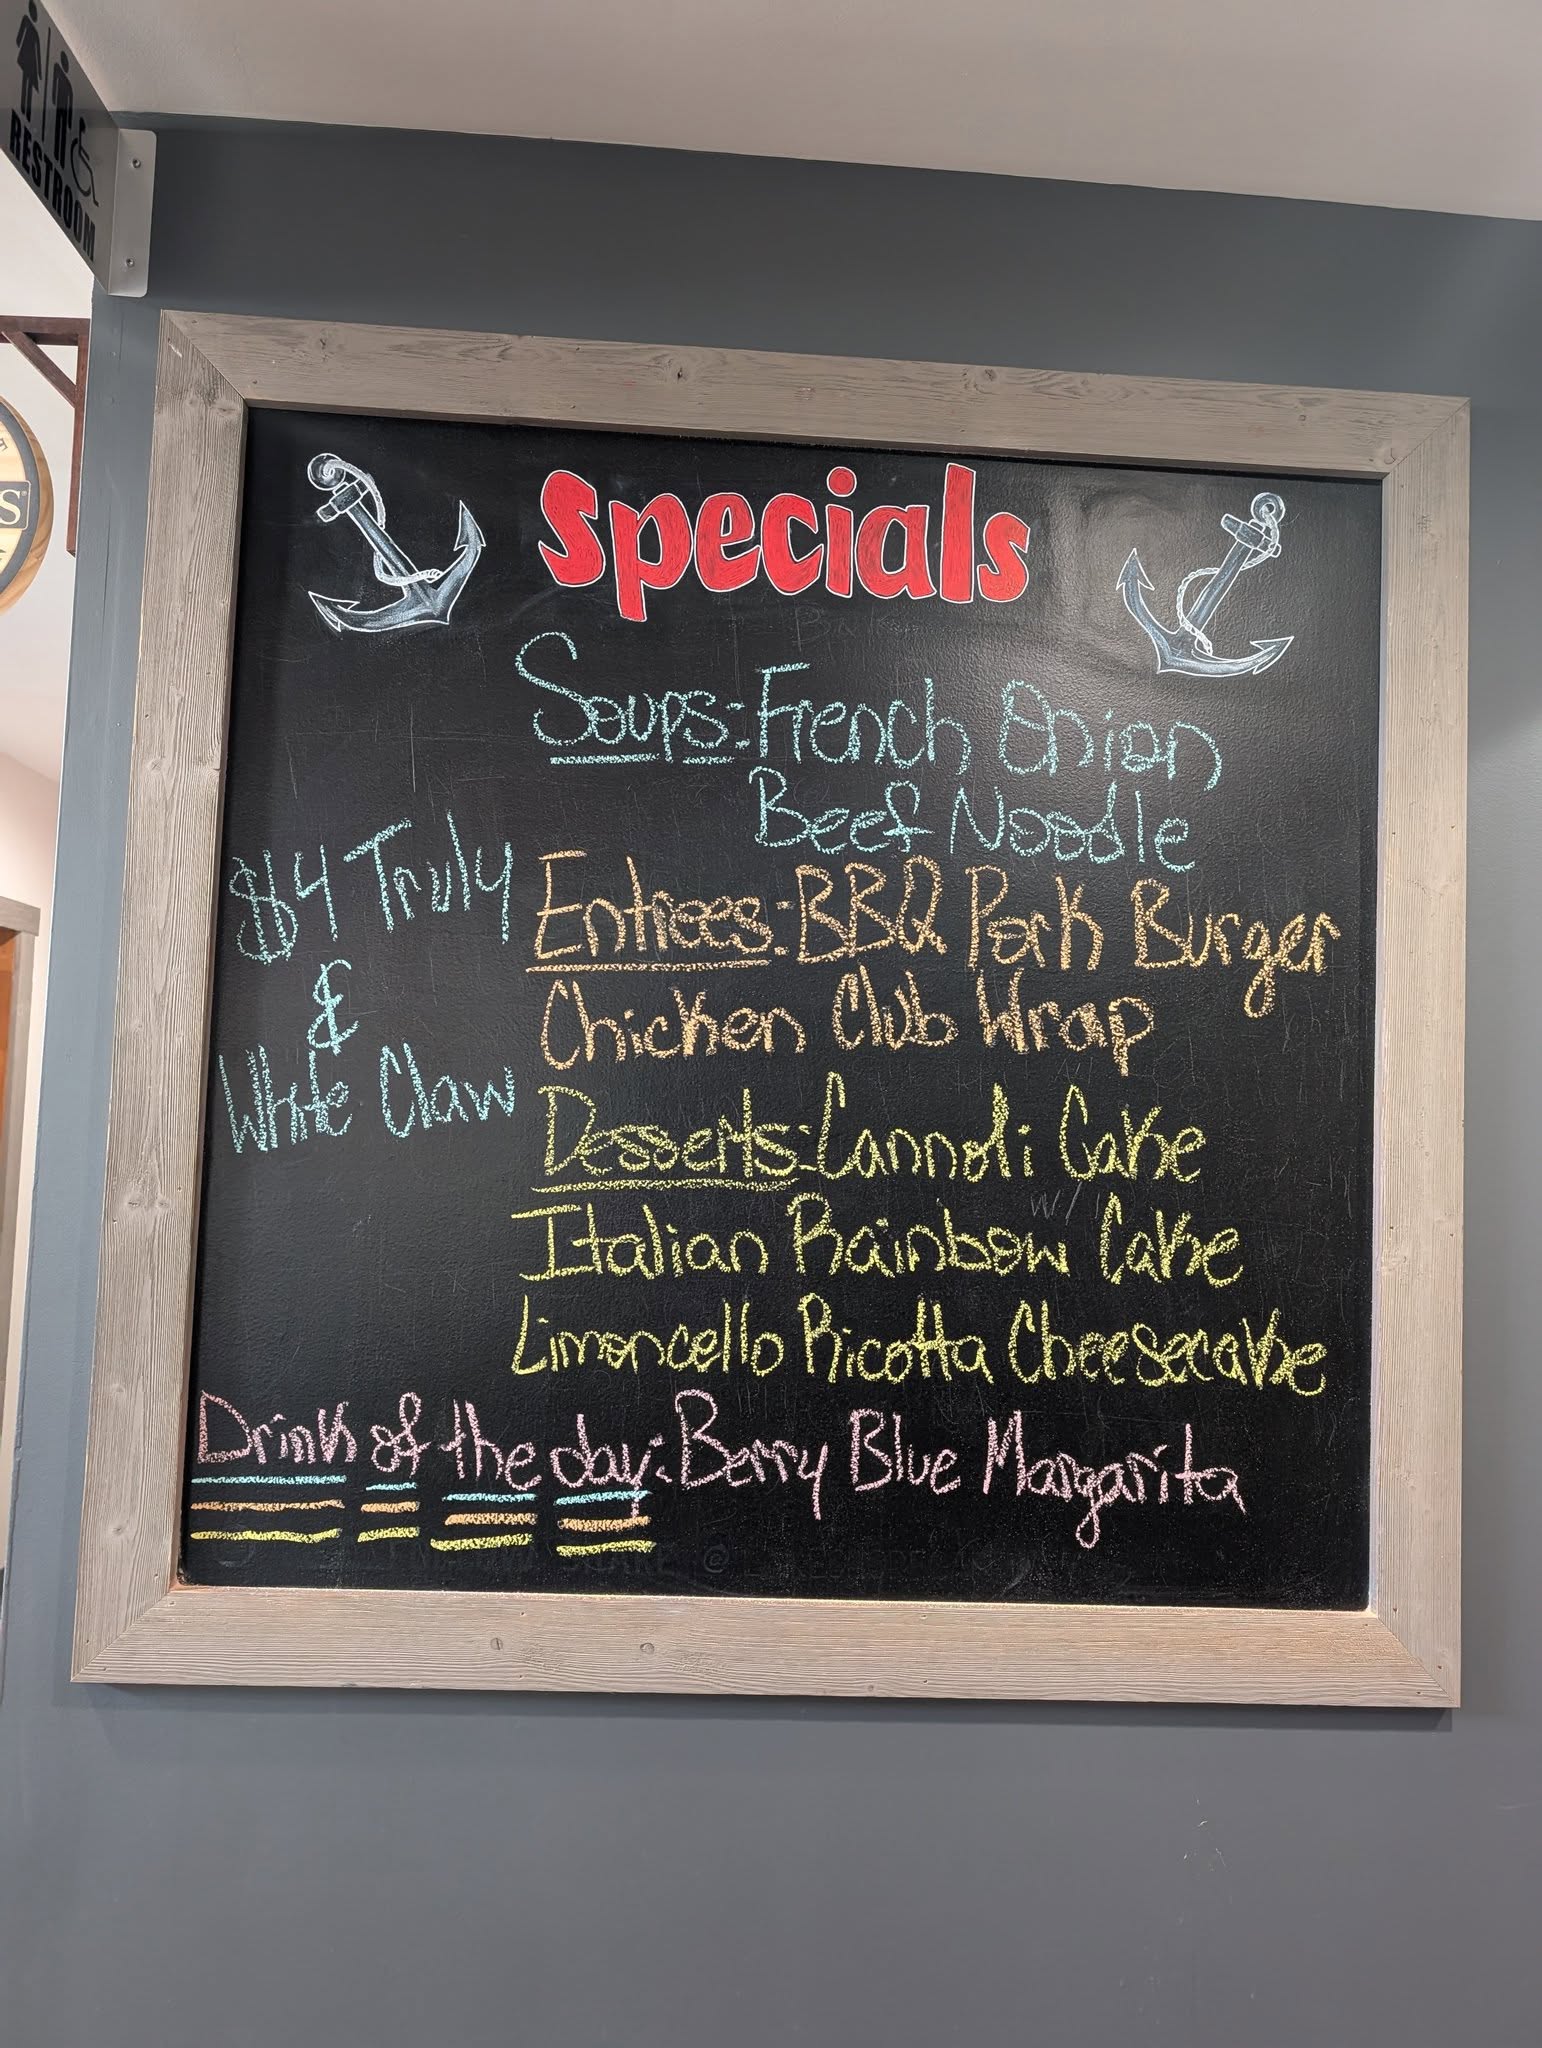 RESTROOM
S
Specials
Soups: French Onion
Beef Noodle
$4 Truly
&
White Claw
Entrees: BBQ Pork Burger
Chicken Club Wrap
Desserts: Cannoli Cake
Italian Rainbow Cake
Limoncello Ricotta Cheesecake
Drink of the day: Berry Blue Margarita